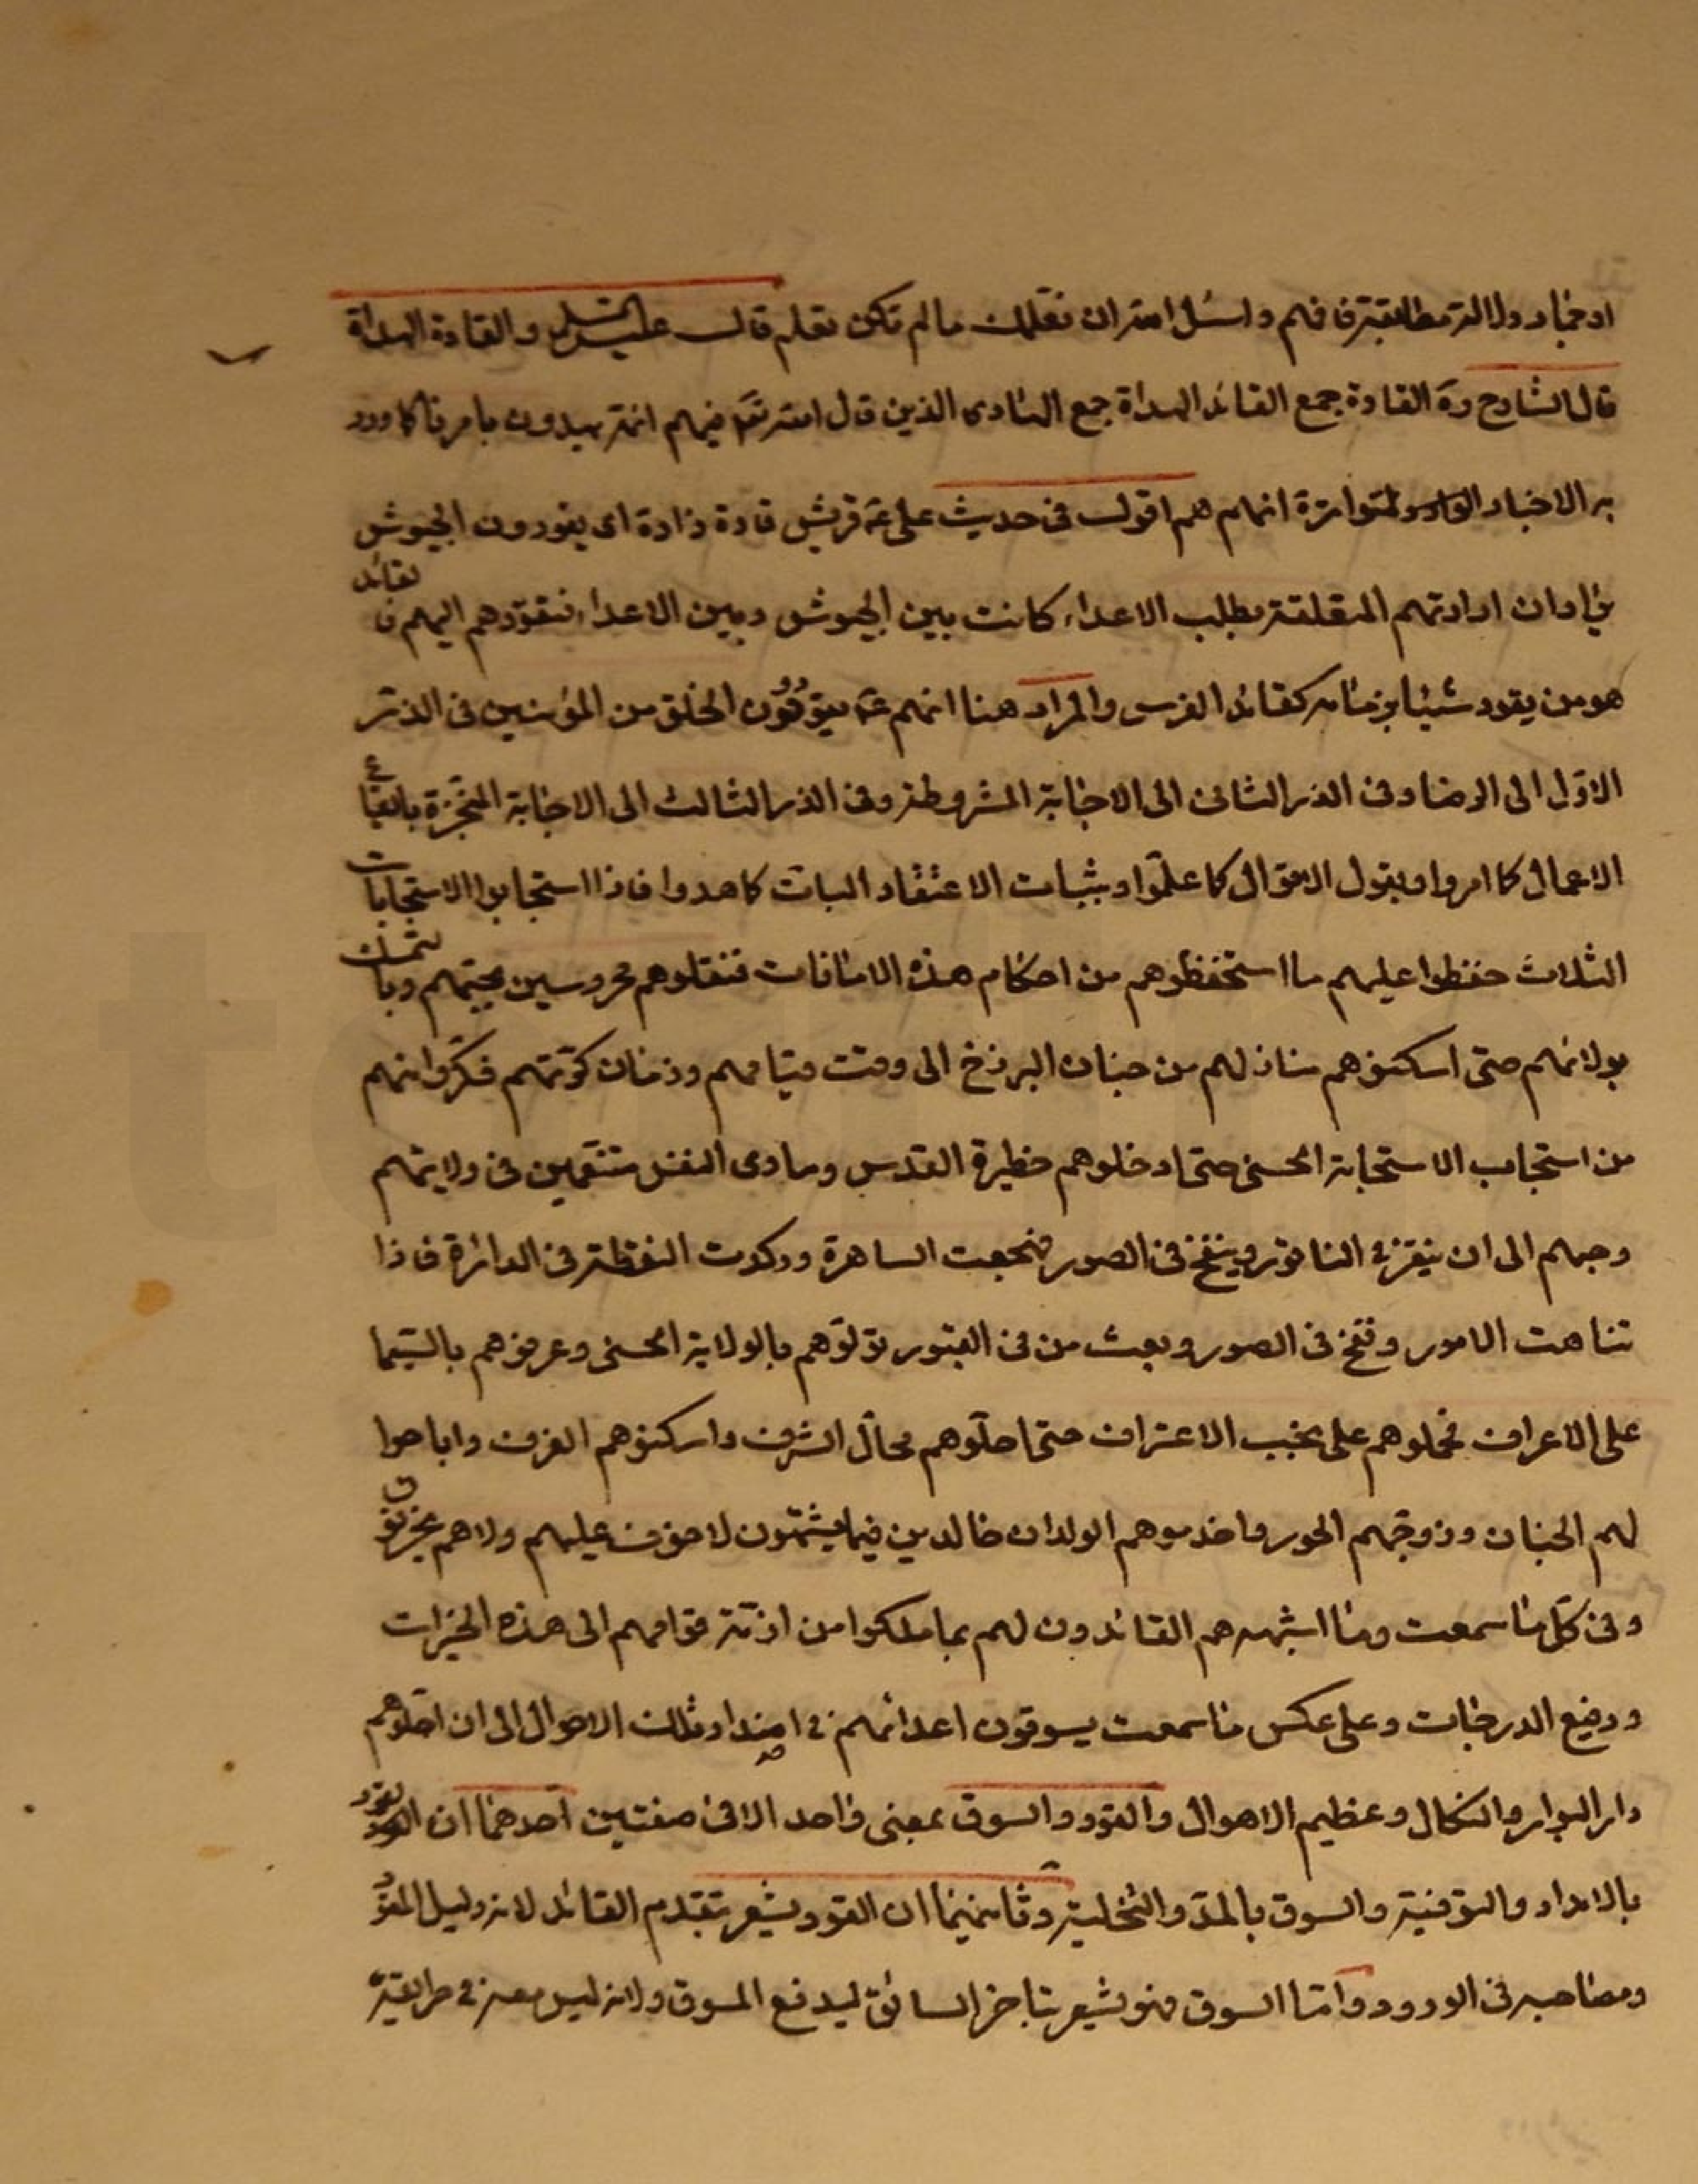 او خبار ودلالة مطابقة فافهم واسئل الله ان تعلمك ما لم تكن تعلم قال عليه السلام والقادة الهداة
قال الشارح ره القادة جمع القائد الهداة جمع الهادى الذين قال الله تعالى فيهم ائمة يهدون بامرنا كما ورد
به الاخبار المتواترة انهم هم اقول فى حديث على ع قريش قادة ذادة اى يقودون الجيوش
ن ارادتهم المتعلقة بطلب الاعداء كانت بين الجيوش وبين الاعداء فتقودهم اليهم فالقائد
هو من يقود شيئا بزمامه كقائد الفرس والمراد هنا انهم ع يقودون الخلق من المؤمنين فى الذر
الاول الى الرضا وفى الذر الثانى الى الاجابة المشروطة وفى الذر الثالث الى الاجابة المنجزة بايقاع
الاعمال كما امروا وبقول الاقوال كما علموا وبثبات الاعتقاد البات كما هدوا فاذا استجابوا الاستجابات
الثلاث حفظوا عليهم ما استحفظوهم من احكام هذه الافاقات فنقلوهم محروسين بمحبتهم وبالتمسك
بولائهم حتى اسكنوهم منازلهم من جنان البرزخ الى وقت قيامهم وزمان كرتهم فكروا بهم
من استجاب الاستجابة الحسنى حتى ادخلوهم حظيرة القدس وماوى النفس متنعمين فى ولايتهم
وحبهم الى ان ينقر فى الناقور وينفخ فى الصور فهجعت الساهرة وركدت النقطة فى الدائرة فاذا
تناهت الامور ونفخ فى الصور وبعث من فى القبور تولوهم بالولاية الحسنى وعرفوهم بالسيما
على الاعراف فحملوهم على نجب الاعتراف حتى احلوهم محال الشرف واسكنوهم الغرف واباحوا
لهم الجنان وزوجهم الحور واخدموهم الولدان خالدين فيما يشتهون لا خوف عليهم ولا هم يحزنون
وفى كل ما سمعت وما اشبهه هم القائدون لهم بما ملكوا من ازمة قوامهم الى هذه الخيرات
ورفيع الدرجات وعلى عكس ما سمعت يسوقون اعدائهم فى اضداد تلك الاحوال الى ان احلوهم
دار البوار والنكال وعظيم الاهوال والقود والسوق بمعنى واحد الا فى صفتين احدهما ان القود
بالامداد والتوفية والسوق بالمد والتخلية وثانيهما ان القود يشعر بتقدم القائد لانه دليل المقود
ومصاحبه فى الورود واما السوق فهو يشعر بتاخر السائق ليدفع المسوق ولانه ليس معه فى طريقته